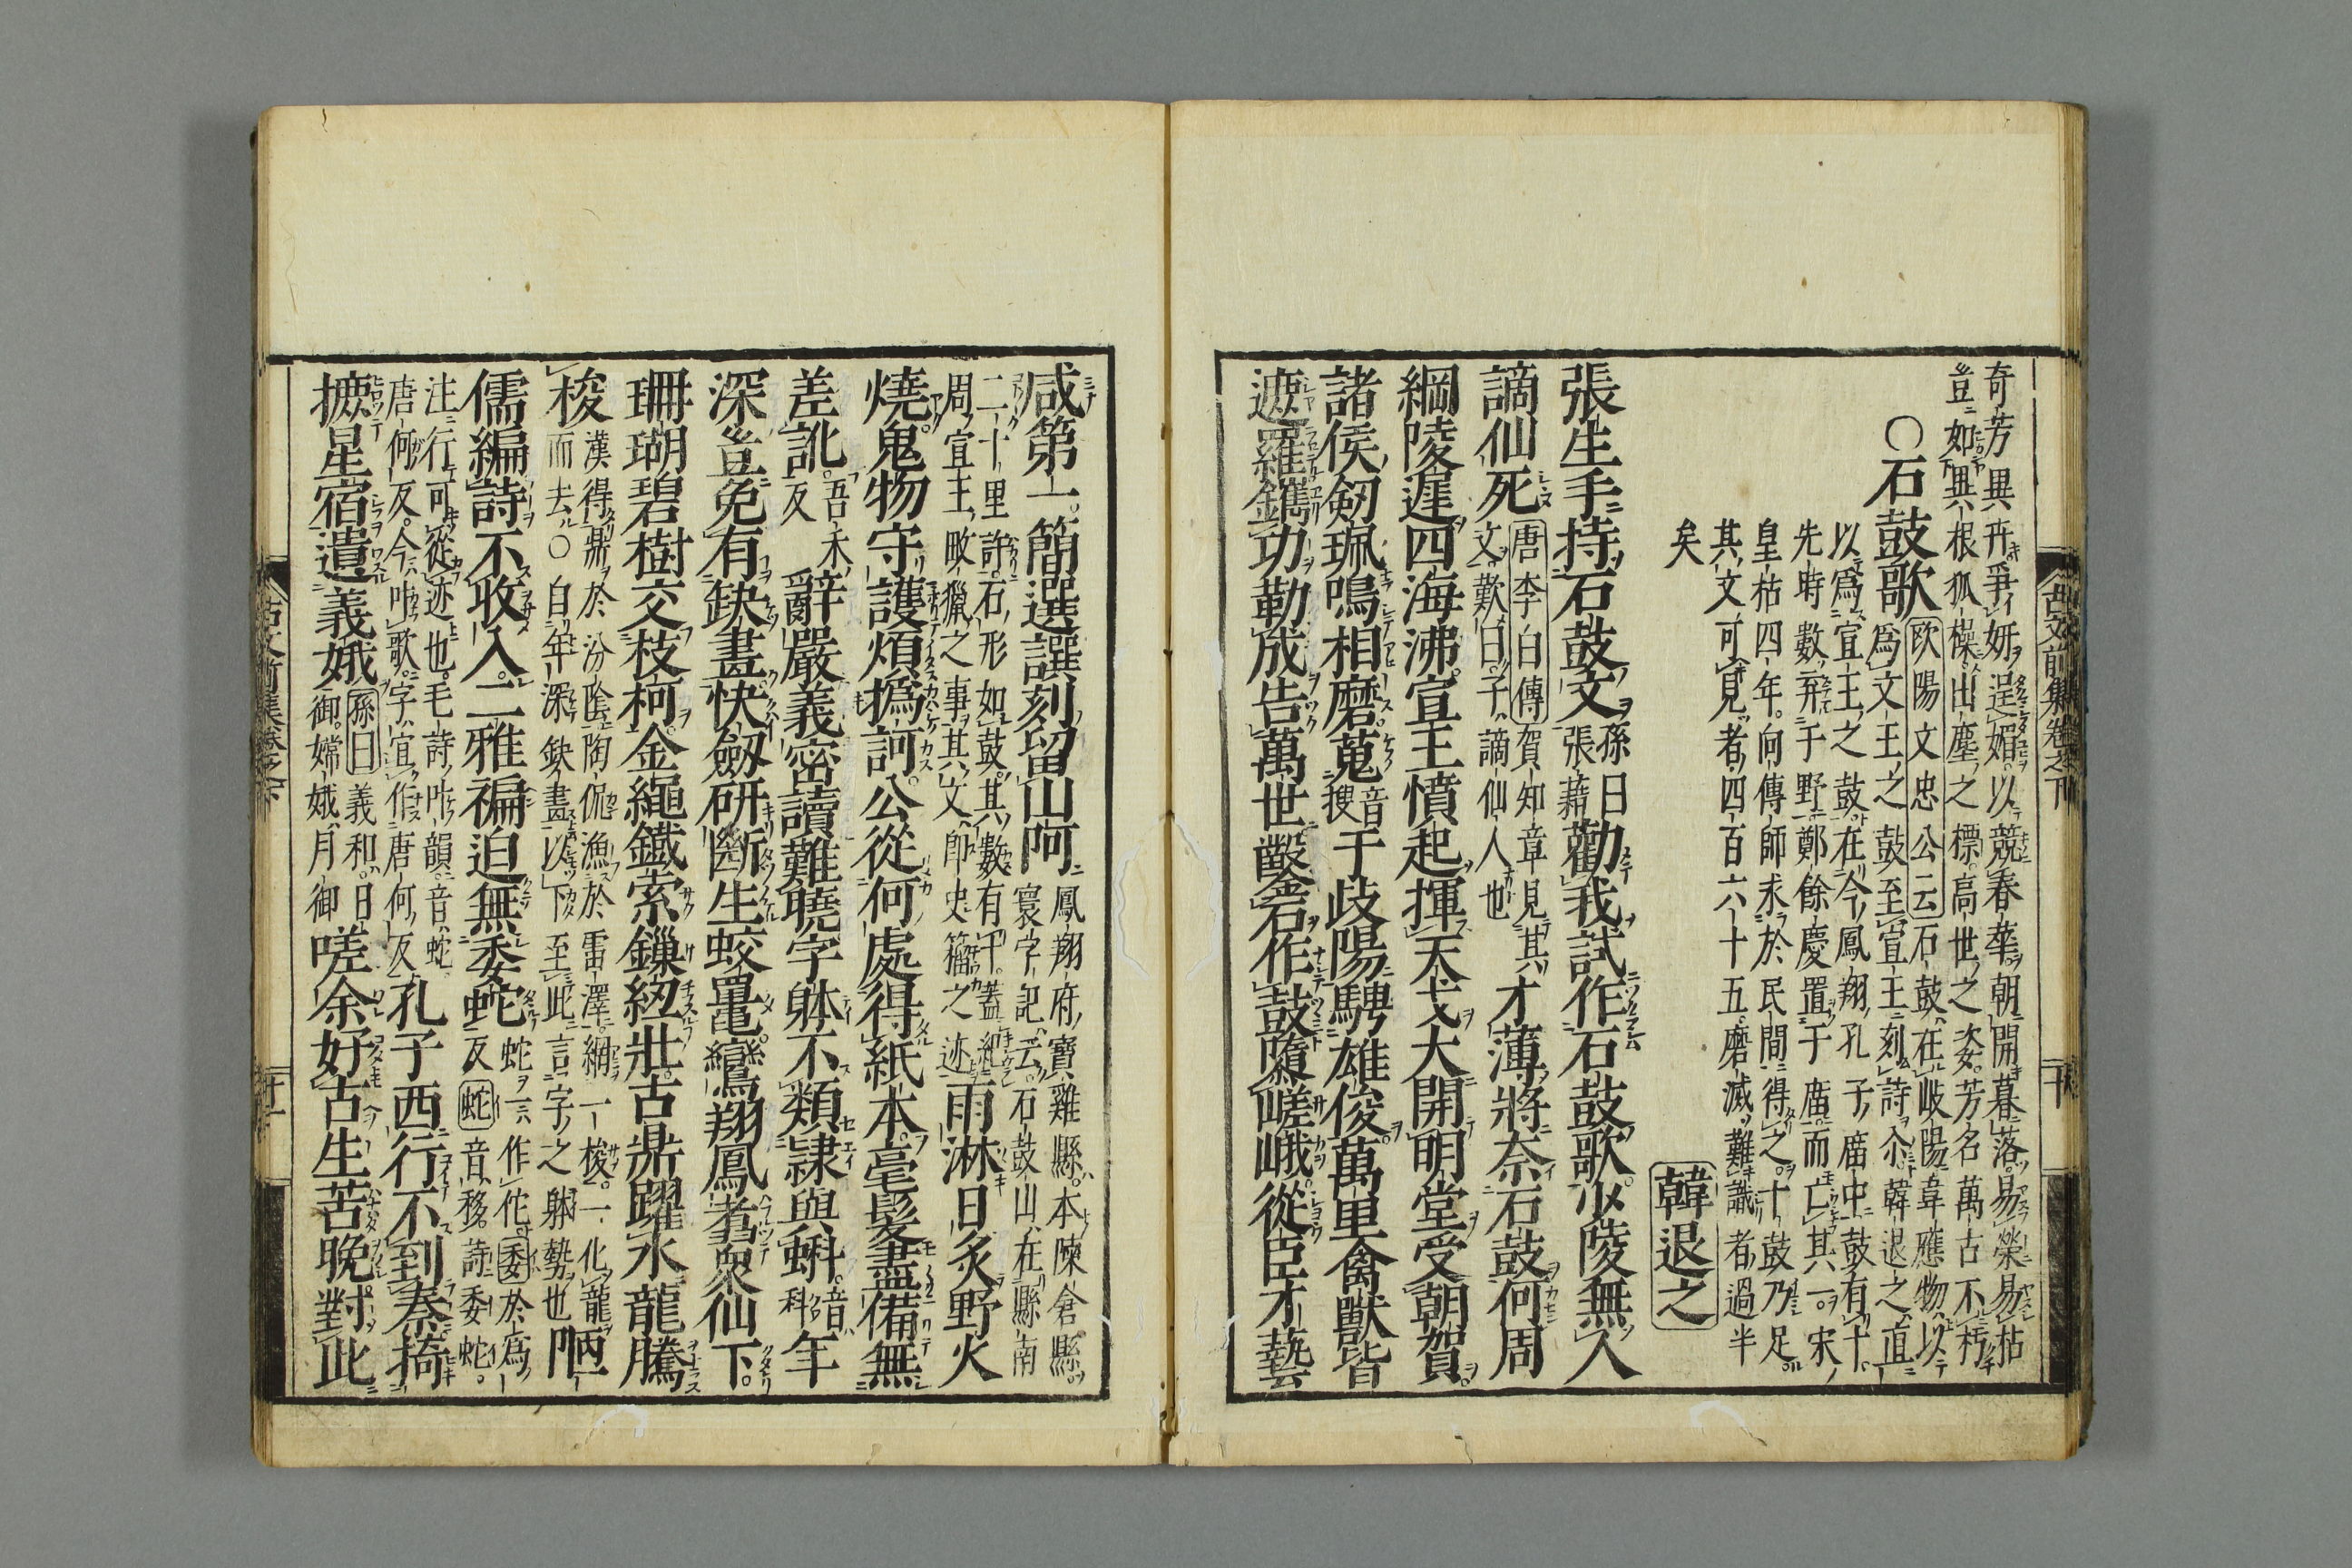 奇芳異卉爭妍逞媚以競春華朝開暮落易榮易枯
豈如異根狐榘出塵之標高世之姿芳名萬古不朽
〇石鼓歌
歐陽文忠公云石鼓在岐陽韋應物以
爲文王之鼓至宣王刻詩尒韓退之直
以爲宣王之鼓在今鳳翔孔子廟中鼓有十
先時數弃于野鄭餘慶置于廟而亡其一宋
皇祐四年向傳師求於民間得之十鼓乃足
其文可見者四百六十五磨滅難識者過半
矣
韓退之
張生手持石鼓文
孫曰
張藉
勸我試作石鼓歌少陵無人
謫仙死
唐李白傳賀知章見其
文歎曰子謫仙人也
才薄將奈石鼓何周
綱陵遲四海沸宣王憤起揮天戈大開明堂受朝賀
諸侯劔珮鳴相磨蒐
音
搜
于歧陽騁雄俊萬里禽獸皆
遮羅鐫功勒成告萬世鑿石作鼓隳嵯峨從臣才藝
咸第一簡選譔刻留山阿
鳳翔府寶雞縣本陳倉縣
寰宇記云石鼓山在縣南
二十里許石形如鼓其數有十蓋紀
周宣王畋獵之事其文即史籀之迹
雨淋日炙野火
燒鬼物守護煩撝訶公從何處得紙本毫髮盡備無
差訛
吾禾
反
辭嚴義密讀難曉字躰不類隷與蝌
音
科
年
深豈免有缺畫快劔斫斷生蛟鼍鸞翔鳳翥衆仙下
珊瑚碧樹交枝柯金繩鐵索鏁紐壯古鼎躍水龍騰
梭
漢得鼎於汾陰陶侃漁於雷澤網一梭一化龍
而去〇自年深缺畫以下至此言字之躰勢也
陋
儒編詩不收入二雅褊迫無委蛇
蛇云作佗委於爲
反蛇音移詩委蛇
注行可從迹也毛詩叶韻音蛇
唐何反今叶歌字宜作唐何反
孔子西行不到秦掎
摭星宿遺義娥
孫曰義和日
御嫦娥月御
嗟余好古生苦晩對此
古文前集卷之下
二十
古文前集卷之下
廿一